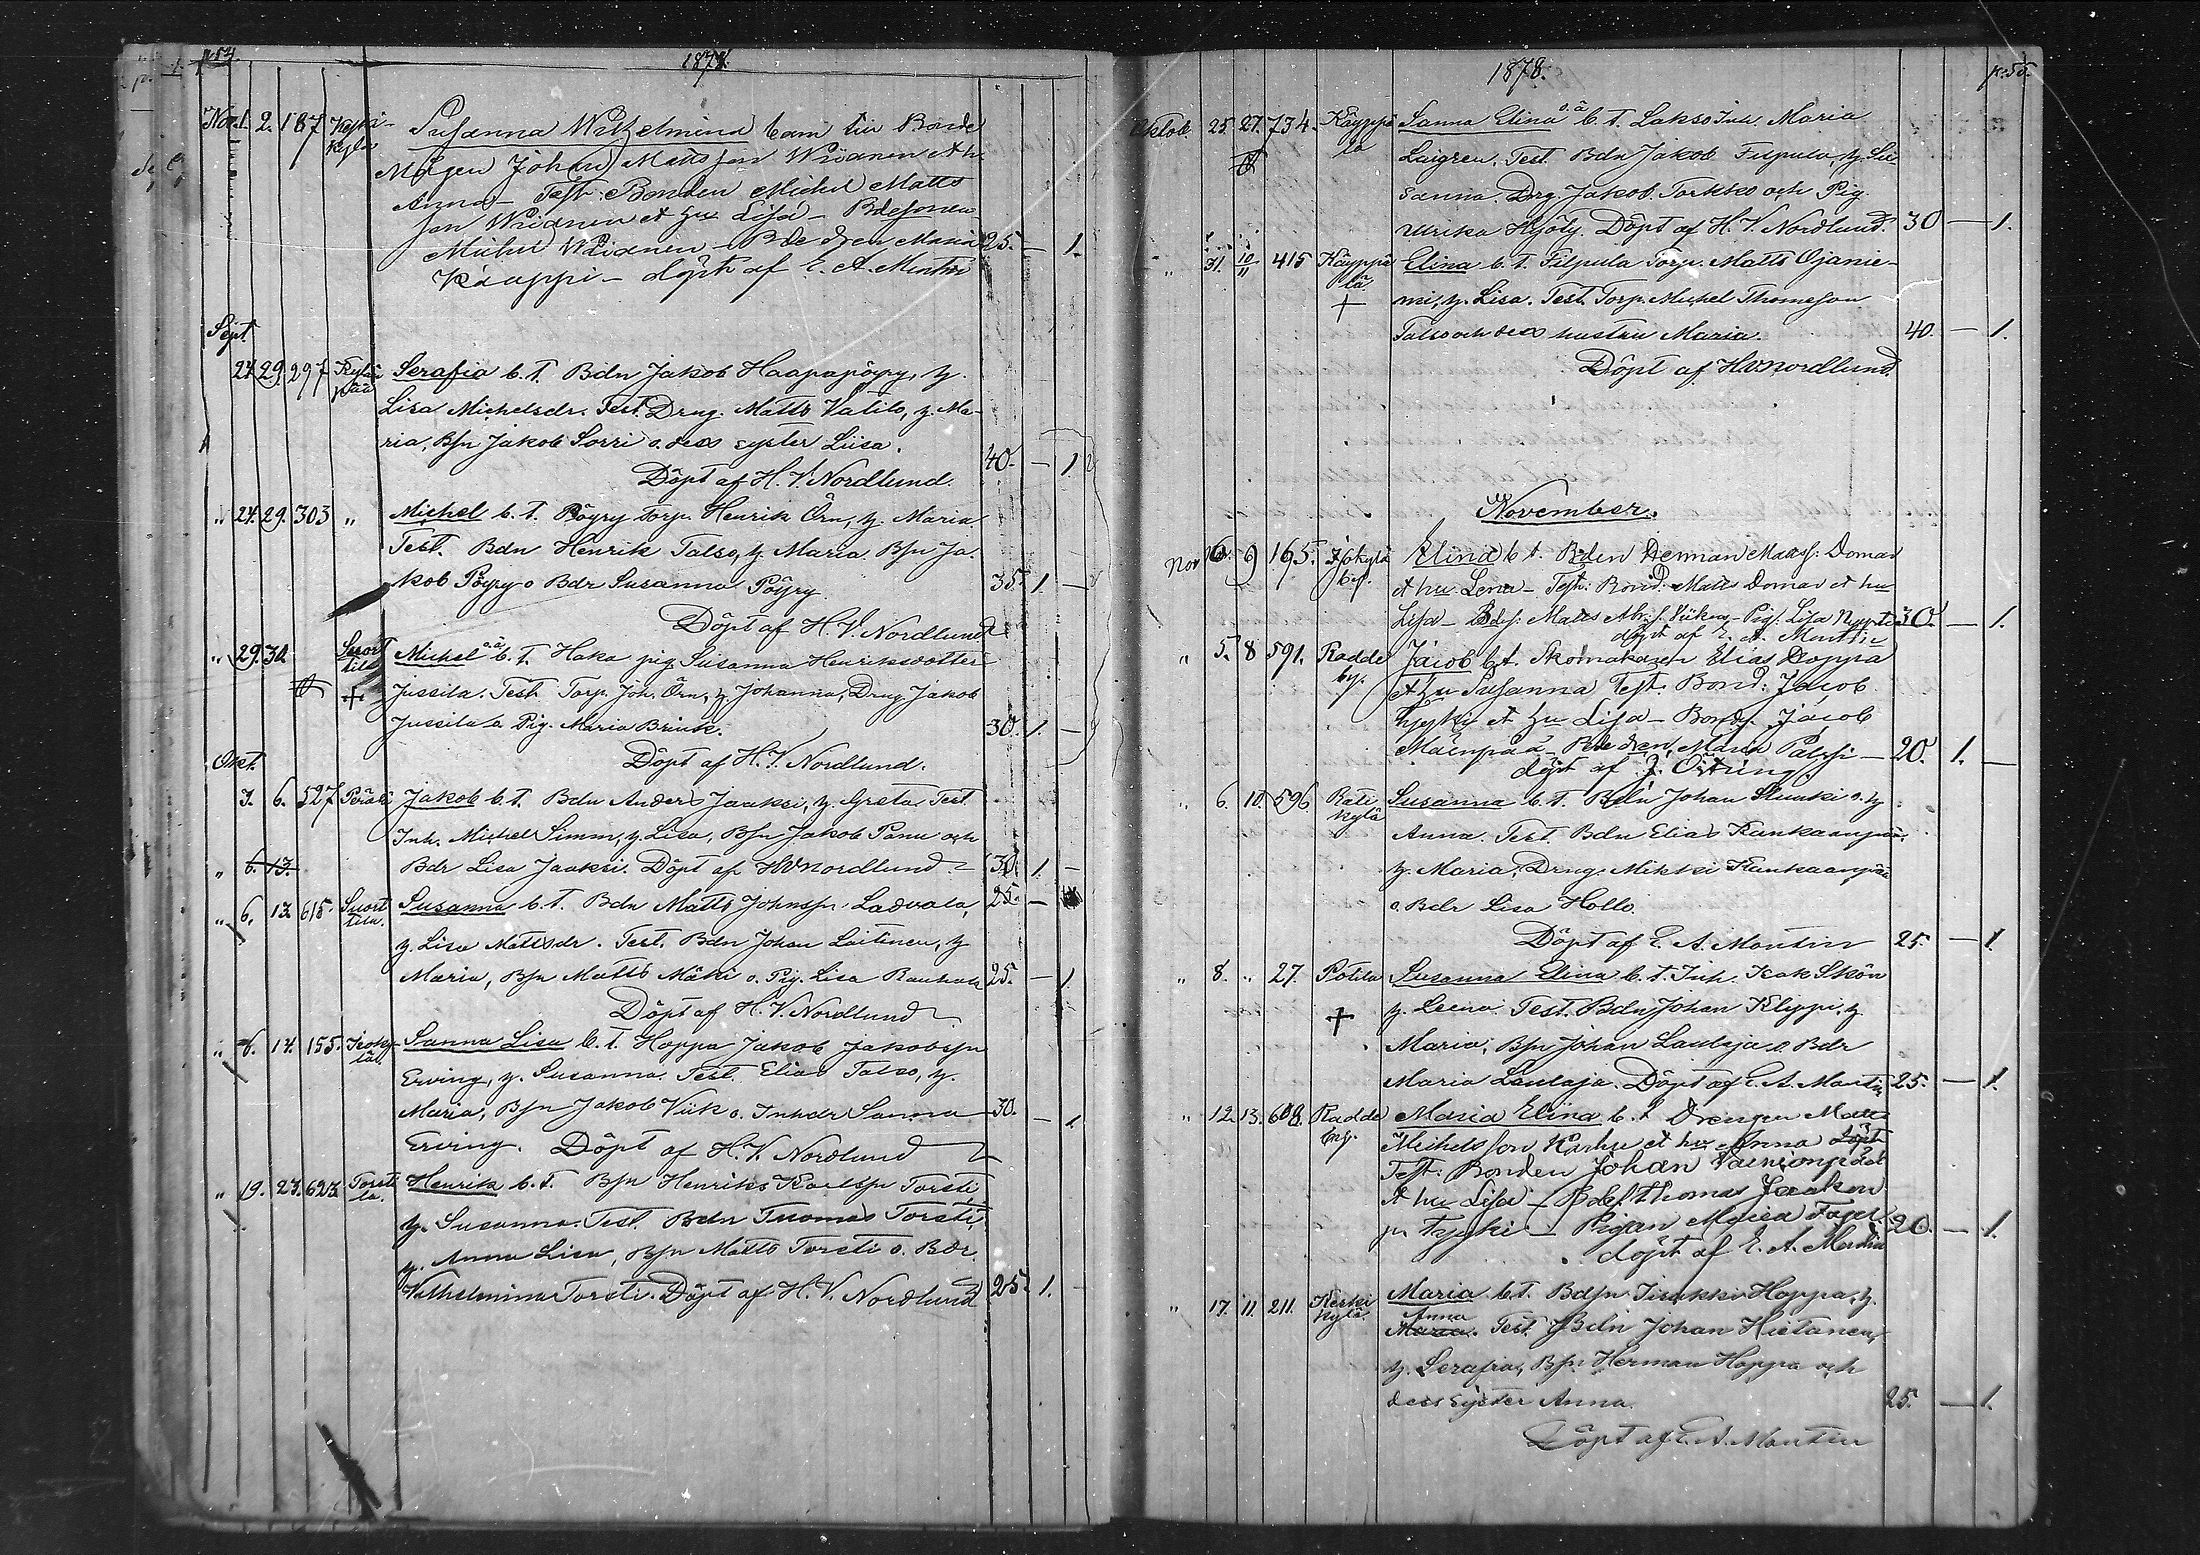 p. 54.
1878.
Nov. 1. 2. 187 Keski-kylä Susanna Wilhelmina barn till Bonde
Mågen Johan Matts son Widnen et h.
Anna – Test: Bonden Michel Matts
son Widnen et hu Lisa – Bdesonen
Michel Widnen – Bde dren Maria 25. – 1.
Knuppi – döpt af E. A. Montin
Sept
24. 29. 297 Kylän pää Serafia b. t. Bdn Jakob Haapapöyry, h.
Lisa Michelsdr. Test. Drng. Matts Valito, h. Ma-
ria, Bsn Jakob Sorri o. dess syster Liisa. 40. – 1
Döpt af H. V. Nordlund.
" 24. 29. 303 " Michel b. t. Pöyry Torp. Henrik Örn, h. Maria.
Test. Bdn Henrik Talso, h. Maria Bsn Ja-
kob Pöyry o Bdr Susanna Pöyry. 35. 1. –
Döpt af H. V. Nordlund
" 29. 30. Suort tila Michel o.ä. b. t. Haka pig Susanna Henriksdotter
+ Jussila. Test. Torp. Joh. Örn, h Johanna, Drng Jakob
Jussila o. Pig. Maria Brink. 30. 1. –
Döpt af H. V. Nordlund.
Okt.
3. 6. 527 Perälä Jakob b. t. Bdn Anders Jaaksi, h. Greta. Test.
Inh. Michel Simm, h. Lisa, Bsn Jakob Panu och
" 6. 13. Bdr Lisa Jaaksi. Döpt af HVNordlund. 30. 1. –
" 6. 13. 615. Suort tila. Susanna b. t. Bdn Matts Johnsn Ladvala, 25. –
h. Lisa Mattsdr. Test. Bdn Johan Laitinen, h
Maria, Bsn Matts Mäki o. Pig. Lisa Rauhala 25. – 1.
Döpt af H. V. Nordlund
" 6. 14. 155. Isoky-lä. Sanna Lisa b. t. Hoppa Jakob Jakobsn
Erving, h. Susanna. Test. Elias Talso, h.
Maria, Bsn Jakob Viik o. Inhdr Sanna 30. – 1.
Erving. Döpt af H. V. Nordlund
" 19. 23. 623. Torsti la. Henrik b. t. Bsn Henriks Karlsn Torsti
h. Susanna. Test. Bdn Thomas Torsti,
h. Anna Lisa, Bsn Matts Torsti o. Bdr.
Wilhelmina Torsti. Döpt af H. V. Nordlund 25. 1. –
1878.
p. 55.
Oktob. 25. 27. 734. Käyppä la Sanna Elina o.ä b. t. Lakso Inh. Maria
Laigren. Test. Bdn Jakob Filpula, h. Su-
sanna. Drg Jakob Torkko och Pig.
Ulrika Hyöty. Döpt af H. V. Nordlund. 30 – 1.
" 31. 10/11 415 Käyppä la Elina b. t. Filpula Torp. Matts Ojanie-
+ mi, h. Lisa. Test. Torp. Michel Thomeson
Talso och dess hustru Maria. 40. – 1.
Döpt af HVNordlund.
November.
Nov 6. 9 165. Isokylä by. Elina b t. Bden Herman Matts s. Domar
et hu Lena – Test: Bond. Matts Domar et hu
Lisa – Bdes: Matts Abr. s. Viiken – Pig. Lisa 30. – 1.
döpt af E. A. Montin
" 5. 8 591. Radde by. Jacob b. t. Skomakaren Elias Doppa
et hu Susanna Test. Bond: Jacob
Hyyki et hu Lisa – Bonds. Jacob
Mäenpää – Bde dren Maria Palssi – 20. 1. –
döpt af J. Östring
" 6. 10. 596. Rati kylä Susanna b. t. Bdn Johan Slunki o. h
Anna. Test. Bdn Elias Kankaanpää.
h. Maria, Drng. Mikki Kankaanpää
o. Bdr Lisa Hollo.
Döpt af E. A. Montin 25. – 1.
" 8. " 27. Potila Susanna Elina b. t. Inh. Isak Skön
+ h. Leena. Test. Bdn Johan Klyppi, h.
Maria, Bsn Johan Laulaja o Bdr
Maria Laulaja. Döpt af E. A. Montin 25. – 1.
" 12. 13. 608. Radde by. Maria Elina b. t. Drengen Matts
Michels son Karhu et hu Anna
Test: Bonden Johan Vainionpää
et hu Lisa – Bdes. Thomas Jaakon
p. Hyyki – Pigan Maria 20. – 1.
döpt af E. A. Montin
" 17. 11. 211. Keski kylä. Maria b t. Bdsn Iisakki Hoppa, h.
Anna
Maria. Test. Bdn Johan Hietanen,
h. Serafia, Bsn Herman Hoppa och
dess syster Anna. 25. – 1.
Döpt af E. A. Montin